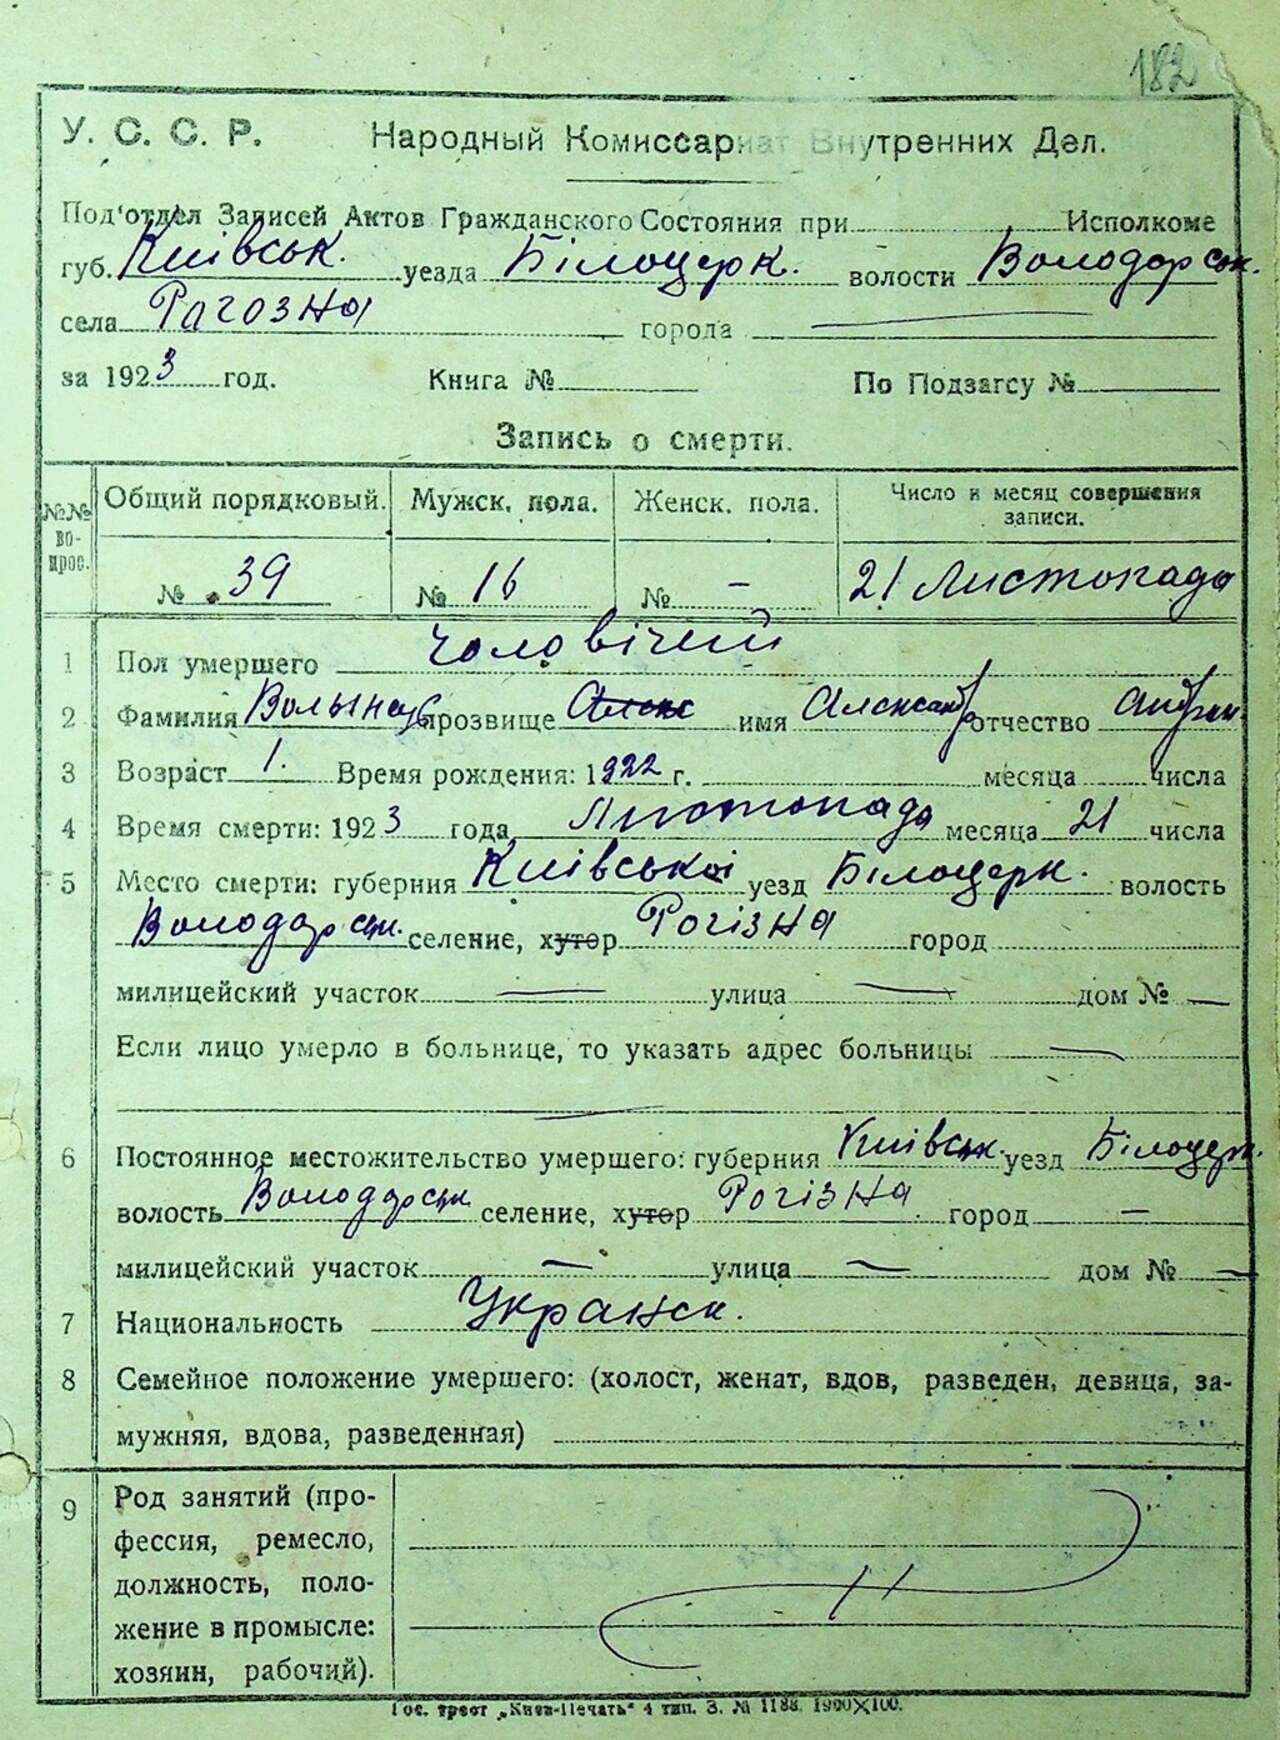 182
У. С. С. Р. Народный Комиссариат Внутренних Дел.
Под'отдел Записей Актов Гражданского Состояния при Исполкоме
губ. Київськ. уезда Білоцерк. волости Володарськ.
села Рагозна города —
за 1923 год. Книга № По Подзагсу №
Запись о смерти.
№№ во- прос. Общий порядковый. Мужск. пола. Женск. пола. Число и месяц совершения записи.
№ 39 № 16 № - 21 Листопада
1 Пол умершего чоловічий
2 Фамилия прозвище Алекс имя Александр отчество
3 Возраст 1. Время рождения: 1922 г. месяца числа
4 Время смерти: 1923 года Листопада месяца 21 числа
5 Место смерти: губерния Київської уезд Білоцерк. волость
Володарськ. селение, хутор Рогізна город
милицейский участок — улица — дом № —
Если лицо умерло в больнице, то указать адрес больницы —
—
6 Постоянное местожительство умершего: губерния Київськ. уезд Білоцерк.
волость Володарськ селение, хутор Рогізна город —
милицейский участок — улица — дом № —
7 Национальность Україн﻿ск.
8 Семейное положение умершего: (холост, женат, вдов, разведен, девица, за-
мужняя, вдова, разведенная)
9 Род занятий (про-
фессия, ремесло,
должность, поло-
жение в промысле:
хозяин, рабочий).
Гос. трест „Киев-Печать" 4 тип. З. № 1188. 1900×100.